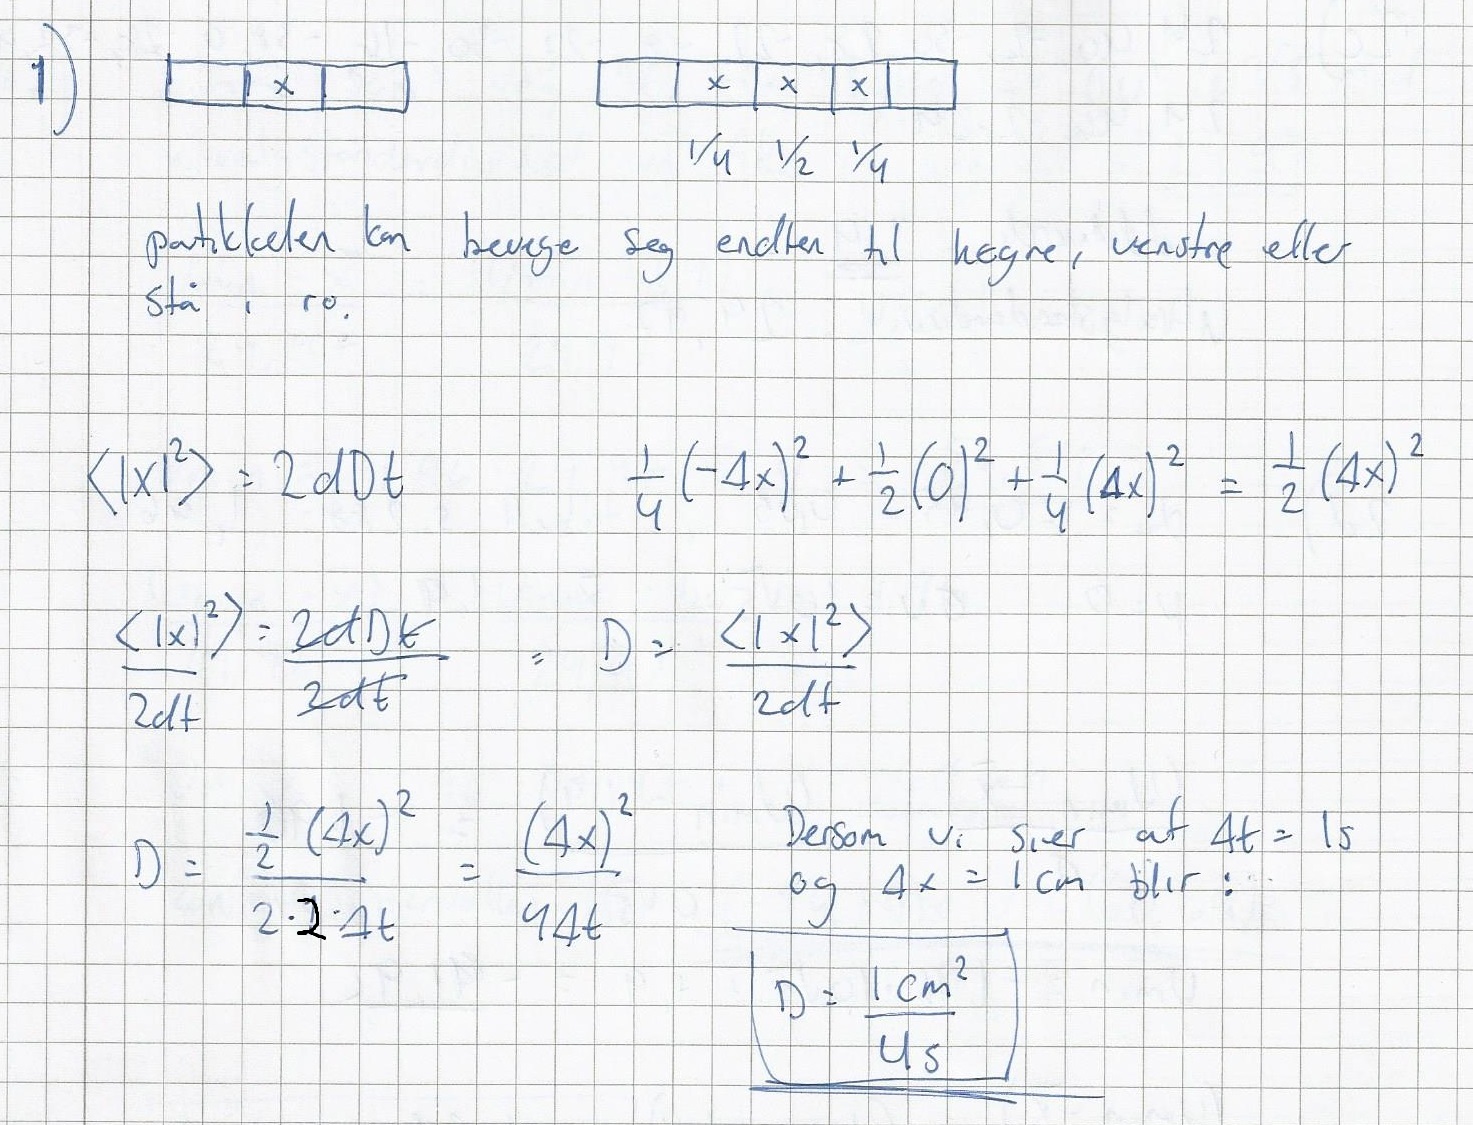 1)
x x x x
1/4 1/2 1/4
partikkelen kan bevege seg endten til høgre, venstre eller
stå i ro.
⟨|x|²⟩ = 2dDt 1/4 (-Δx)² + 1/2 (0)² + 1/4 (Δx)² = 1/2 (Δx)²
⟨|x|²⟩/2dt = 2dDt/2dt = D = ⟨|x|²⟩/2dt
D = 1/2 (Δx)² / 2·1·Δt = (Δx)²/4Δt
Dersom vi sier at Δt = 1s
og Δx = 1cm blir :
D = 1cm²/4s